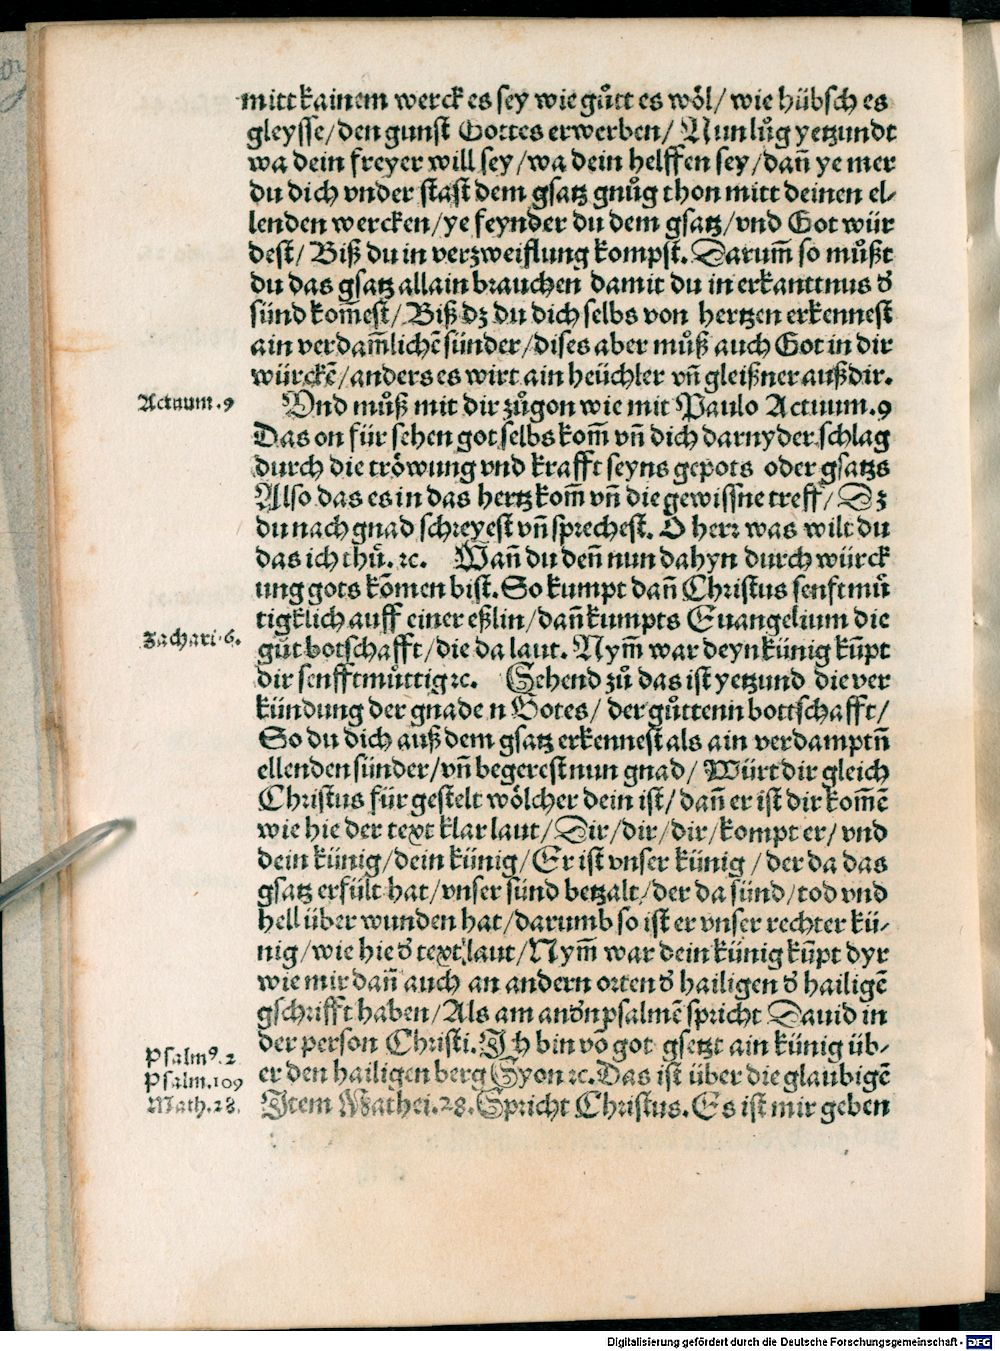 mitt kainem werck es sey wie gůtt es wöl/ wie hübsch es
gleysse/ den gunst Gottes erwerben/ Nun lůg yetzundt
wa dein freyer will sey/ wa dein helffen sey/ dañ ye mer
du dich vnder stast dem gsatz gnůg thon mitt deinen el⸗
lenden wercken/ ye feynder du dem gsatz/ vnd Got wür
dest/ Biß du in verzweiflung kompst. Darum̄ so můßt
du das gsatz allain brauchen damit du in erkanttnus d̓
sünd kom̄est/ Biß dz du dich selbs von hertzen erkennest
ain verdam̄lichē sünder/ dises aber můß auch Got in dir
würckē/ anders es wirt ain heüchler vñ gleißner auß dir.
Actuum. 9
Vnd můß mit dir zůgon wie mit Paulo Actuum. 9
Das on für sehen got selbs kom̄ vñ dich darnyder schlag
durch die tröwung vnd krafft seyns gepots oder gsatzs
Also das es in das hertz kom̄ vñ die gewissne treff/ Dz
du nach gnad schreyest vñ sprechest. O herr was wilt du
das ich thů. ꝛc. Wañ du deñ nun dahyn durch würck
ung gots kōmen bist. So kumpt dañ Christus senftmů
tigklich auff einer eßlin/ dañ kumpts Euangelium die
Zachari. 6.
gůt botschafft/ die da laut. Nym̄ war deyn künig kūpt
dir senfftmůttig ꝛc. Gehend zů das ist yetzund die ver
kündung der gnade n Botes/ der gůttenn bottschafft/
So du dich auß dem gsatz erkennest als ain verdamptñ
ellenden sünder/ vñ begerest nun gnad/ Würt dir gleich
Christus für gestelt wölcher dein ist/ dañ er ist dir kom̄ē
wie hie der text klar laut/ Dir/ dir/ dir/ kompt er/ vnd
dein künig/ dein künig/ Er ist vnser künig / der da das
gsatz erfült hat/ vnser sünd betzalt/ der da sünd/ tod vnd
hell über wunden hat/ darumb so ist er vnser rechter kü⸗
nig/ wie hie d̓ text laut/ Nym̄ war dein künig kūpt dyr
wie mir dañ auch an andern orten d̓ hailigen d̓ hailigē
gschrifft haben/ Als am and̓n psalmē spricht Dauid in
der person Christi. Ich bin vō got gsetzt ain künig üb⸗
Psalmꝰ. 2
er den hailigen berg Syon ꝛc. Das ist über die glaubigē
Psalm. 109
Item Mathei. 28. Spricht Christus. Es ist mir geben
Math. 28.
Digitalisierung gefördert durch die Deutsche Forschungsgemeinschaft - DFG